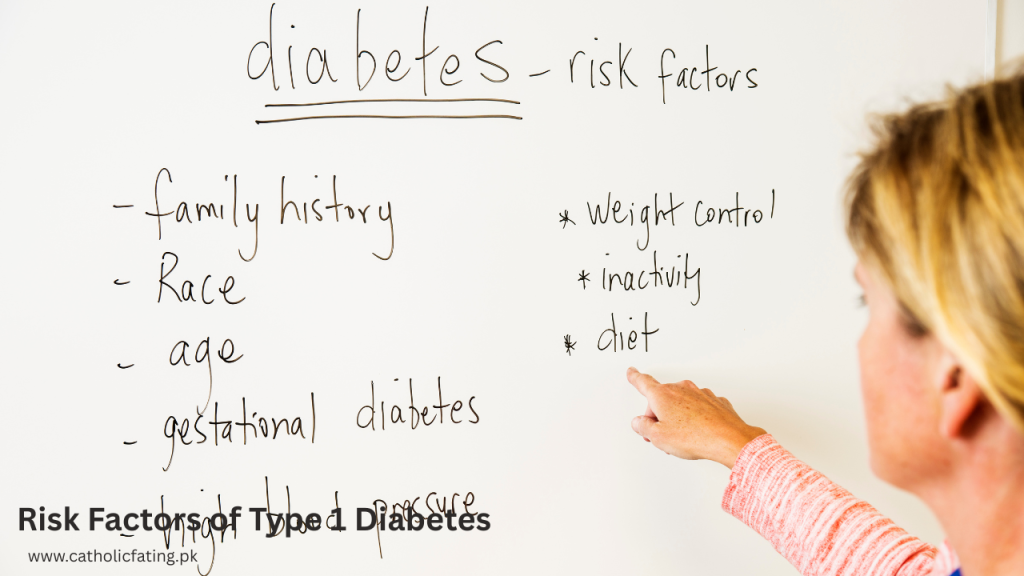 diabetes - risk factors
- family history
- Race
- age
- gestational diabetes
- high blood pressure
* Weight control
* inactivity
* diet
Risk Factors of Type 1 Diabetes
www.catholicfating.pk